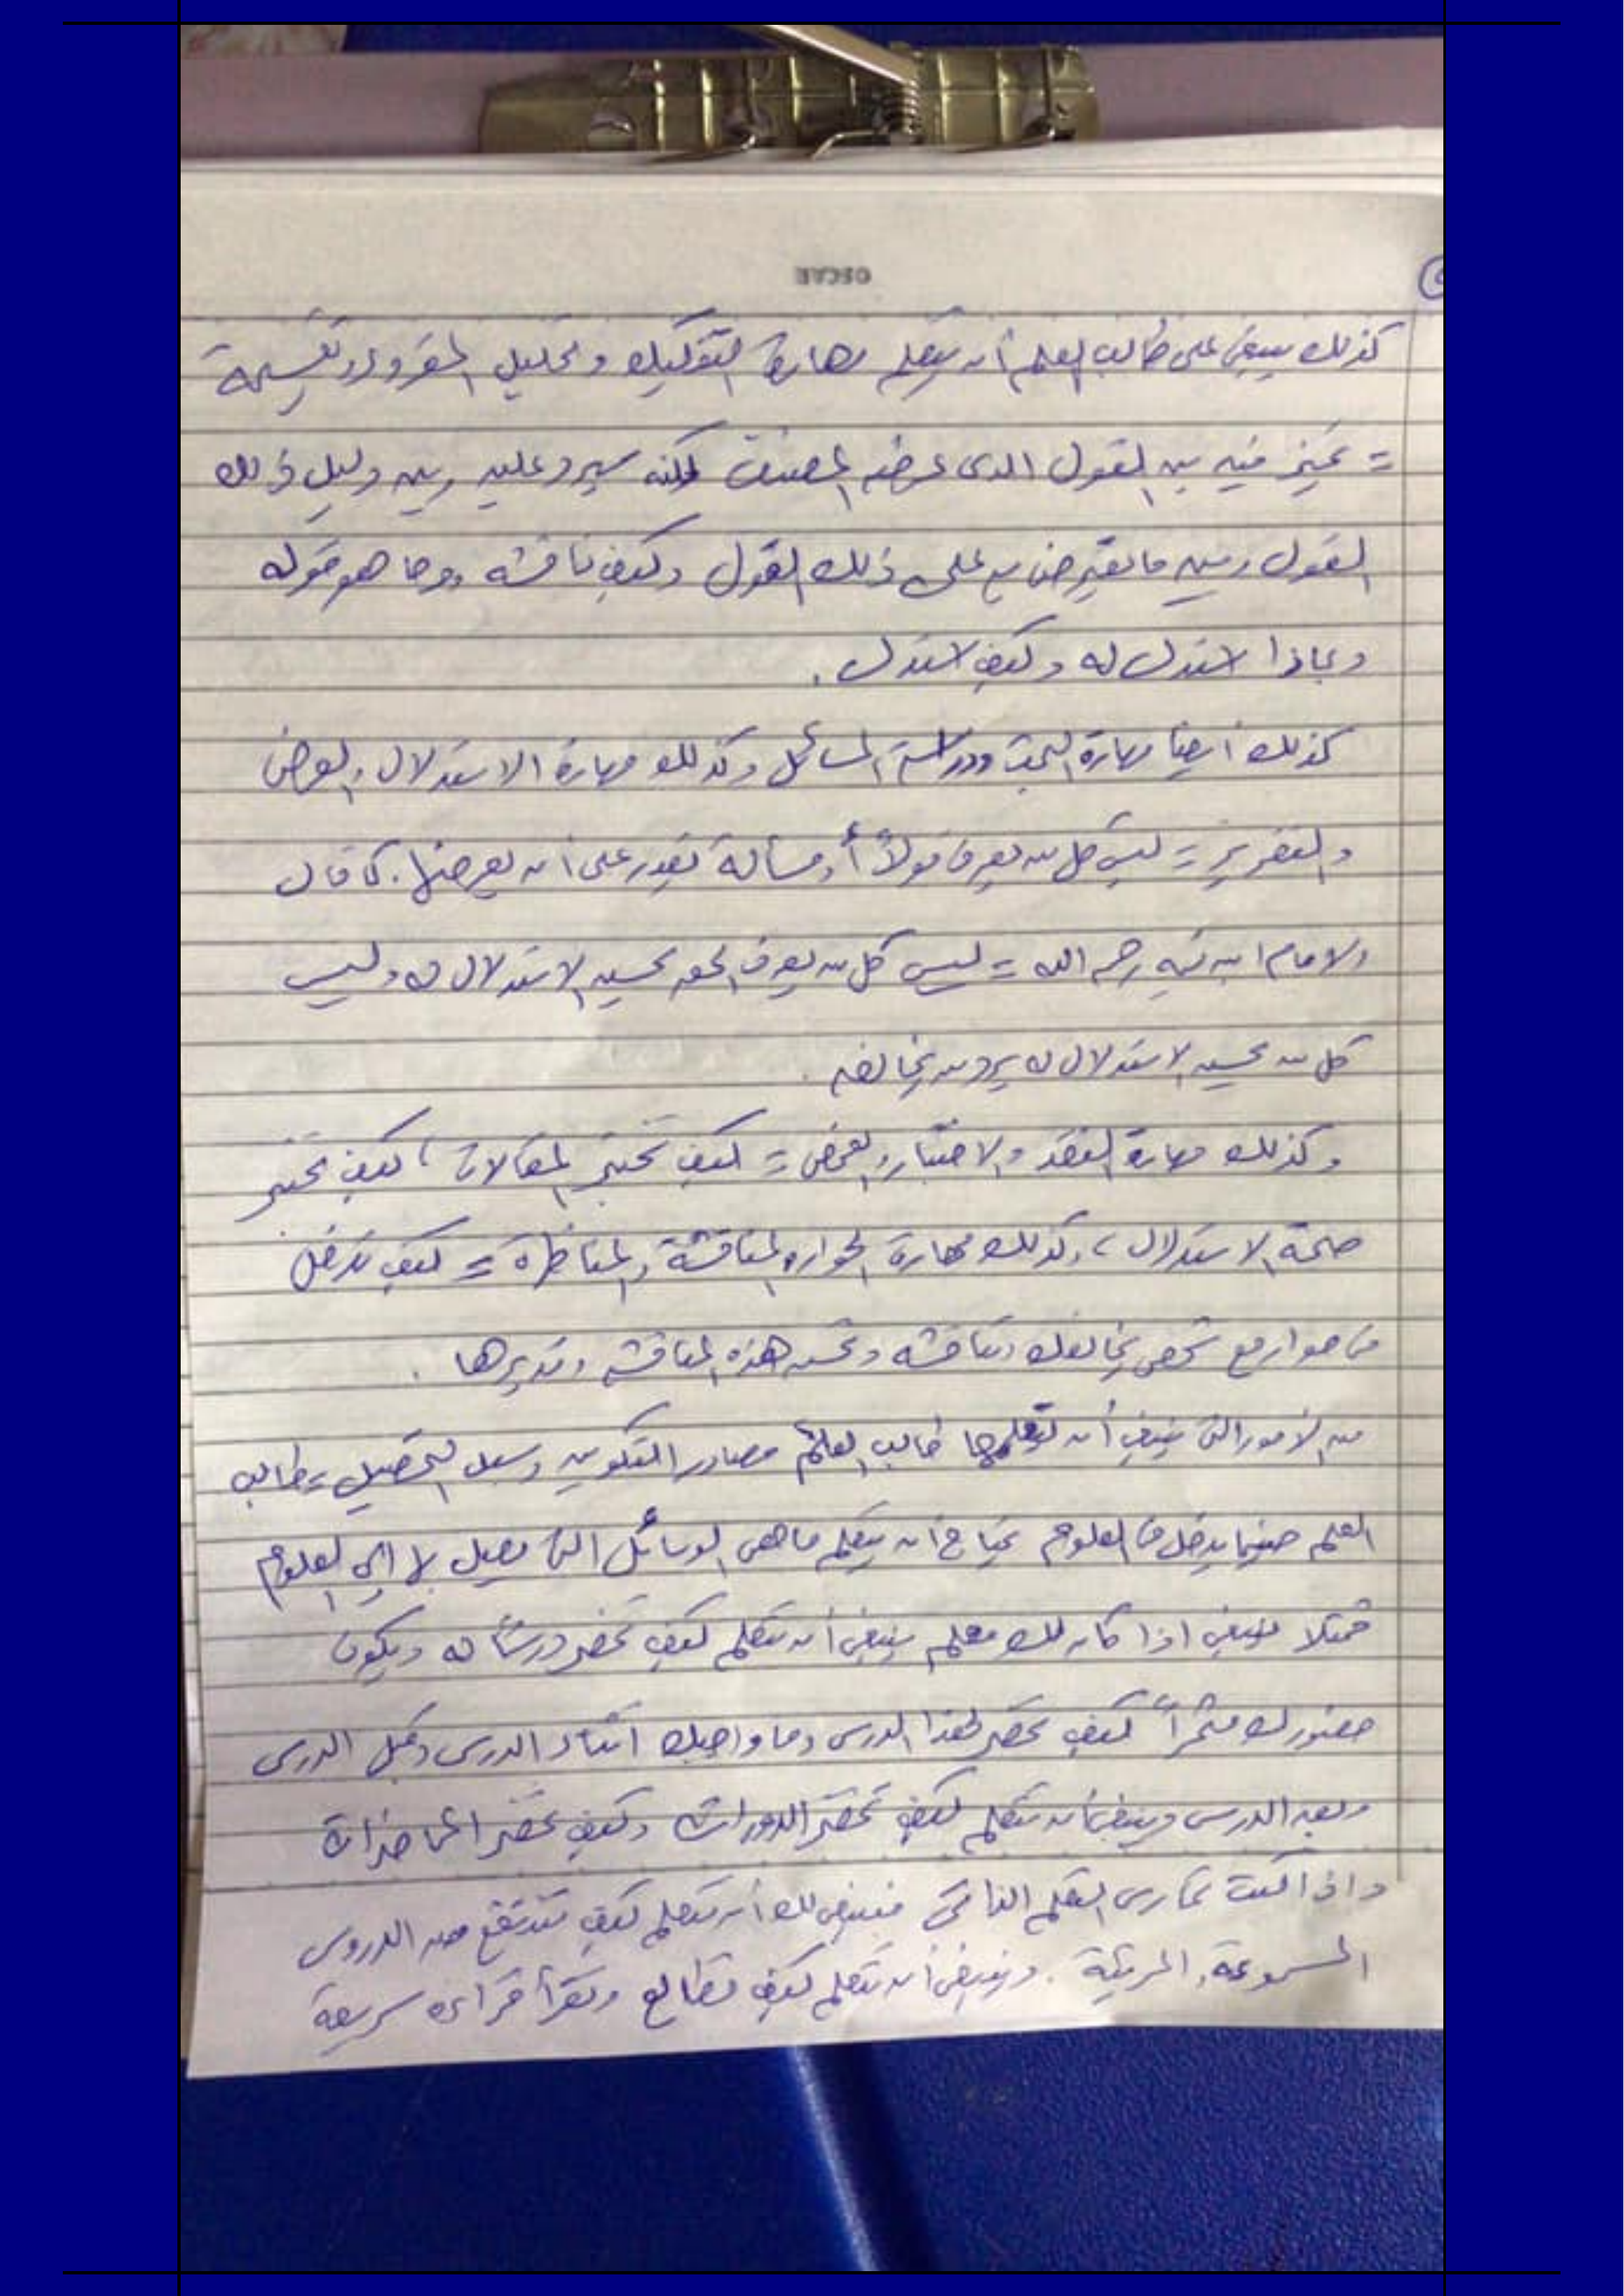 OSCAR
كذلك ينبغي على طالب العلم أن يتعلم مهارة التفكيك وتحليل المقروء وتقسيمه
= تميز فيه بين القول الذي عرضه المصنف لكنه سيرد عليه وبين دليل ذلك
القول وبين ما يعترض به على ذلك القول وكيف ناقشه وما هو قوله
وبماذا استدل له وكيف استدل .
كذلك أيضا مهارة البحث ودراسة المسائل وكذلك مهارة الاستدلال والعرض
والتقرير = ليس كل من يعرف قولاً أو مسألة يقدر على أن يعرضها. كما قال
الامام ابن تيميه رحمه الله = ليس كل من يعرف الحق يحسن الاستدلال له وليس
كل من يحسن الاستدلال له يرد من يخالفه .
وكذلك مهارة النقد والاختبار والفحص = كيف تختبر المقالات ، كيف تختبر
صحة الاستدلال ، وكذلك مهارة الحوار والمناقشة والمناظرة = كيف تدخل
في حوار مع شخص يخالفك وتناقشه وتحسن هذه المناقشه وتديرها .
من الأمور التي ينبغي أن يتعلمها طالب العلم مصادر التكوين وسبل التحصيل = طالب
العلم حينما يدخل في العلوم يحتاج أن يتعلم ما هي الوسائل التي يصل بها إلى العلوم
فمثلا ينبغي اذا كان لك معلم ينبغي أن تتعلم كيف تحضر درساً له ويكون
حضورك مثمراً كيف تحضر لهذا الدرس وما واجبك أثناء الدرس وقبل الدرس
وبعد الدرس وينبغي أن تتعلم كيف تحضر الدورات وكيف تحضر المحاضرات
واذا كنت تمارس التعلم الذاتي فينبغي لك أن تتعلم كيف تنتفع من الدروس
المسموعة والمرئية . وينبغي أن تتعلم كيف تطالع وتقرأ قراءه سريعة